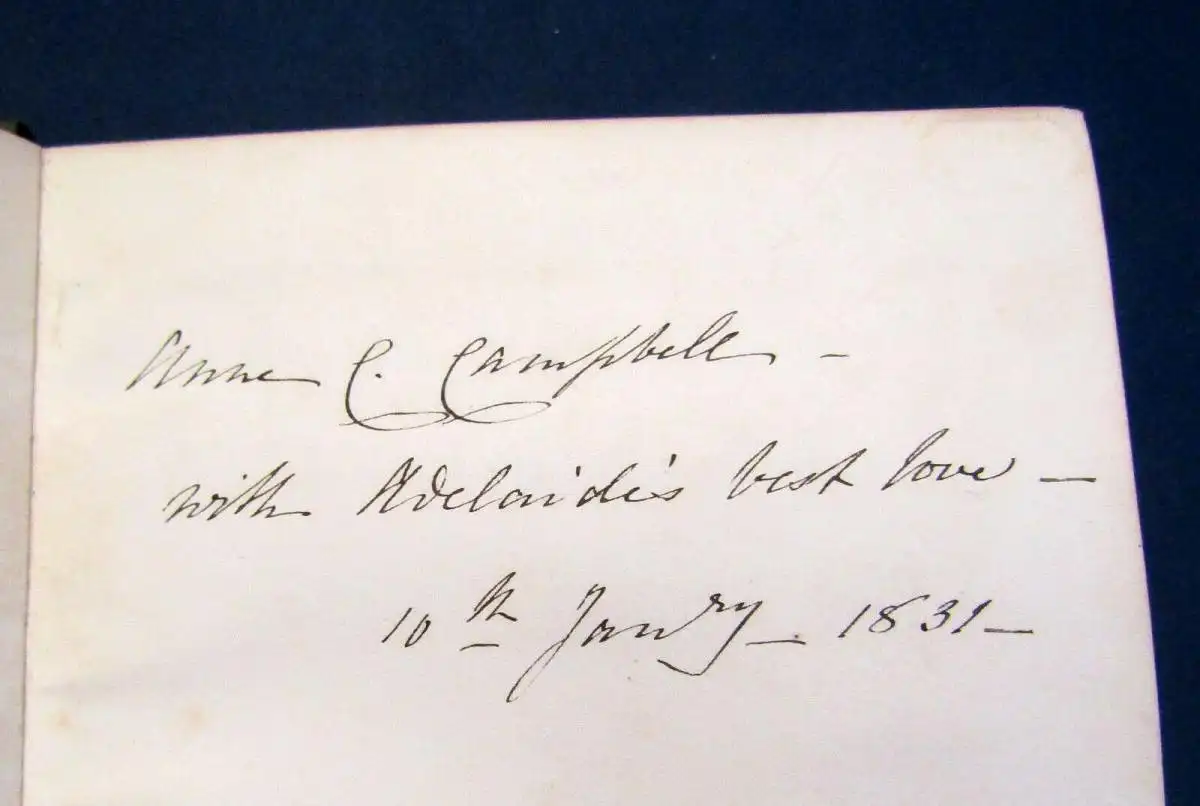 Anne C. Campbell –
with Adelaide's best love –
10th Janry – 1831 –